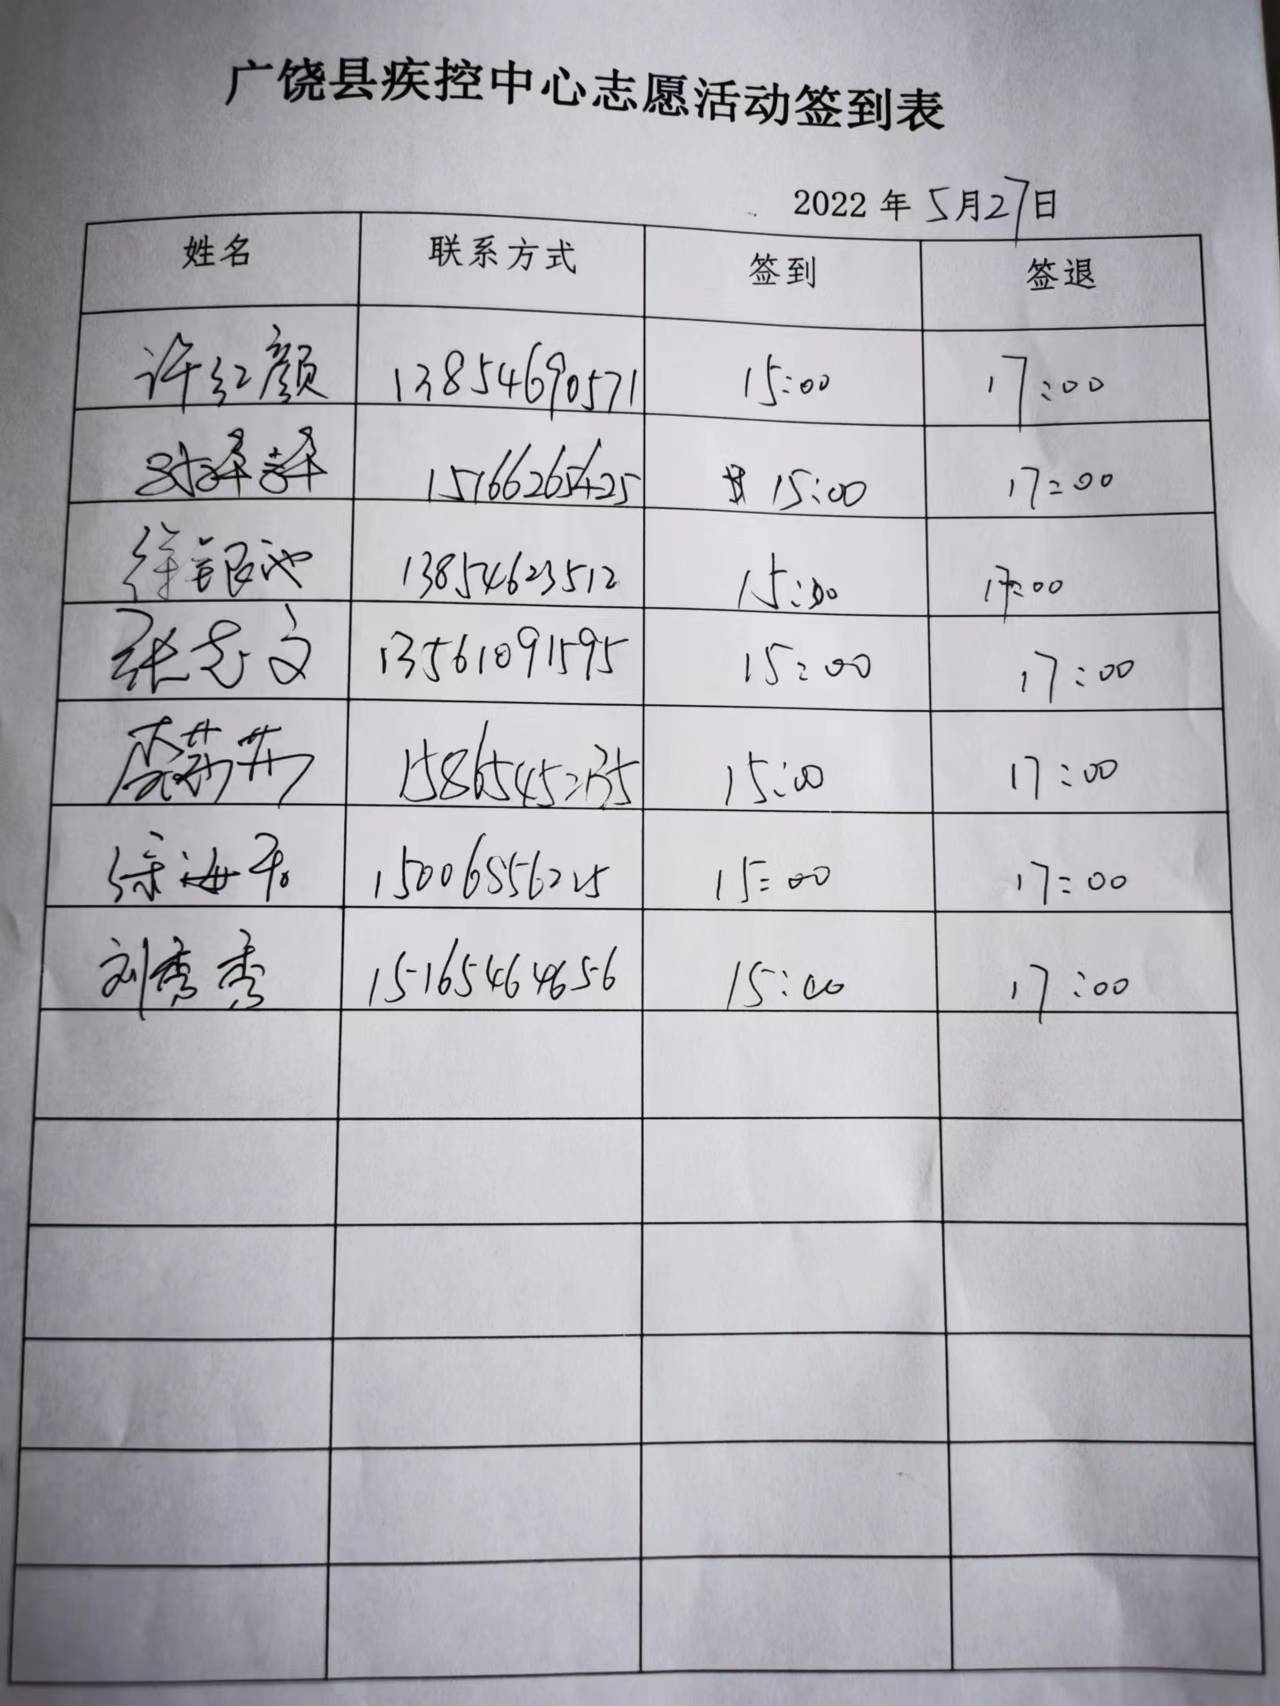 广饶县疾控中心志愿活动签到表
2022年5月27日
姓名 联系方式 签到 签退
许红颜 13854690571 15:00 17:00
15166265425 15:00 17:00
徐银池 13854623512 15:00 17:00
张志文 13561091595 15:00 17:00
15865452135 15:00 17:00
徐海 15006856225 15:00 17:00
刘秀秀 15165464656 15:00 17:00